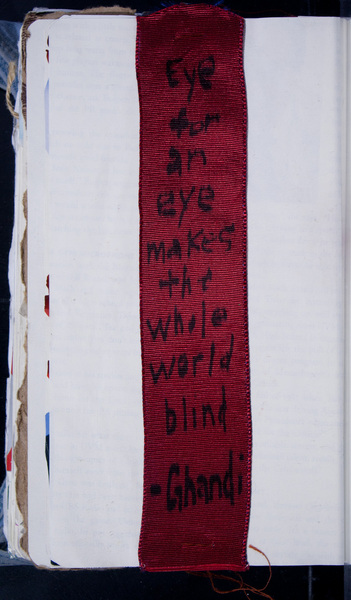 Eye
for
an
eye
MAKES
the
whole
world
blind
-Ghandi